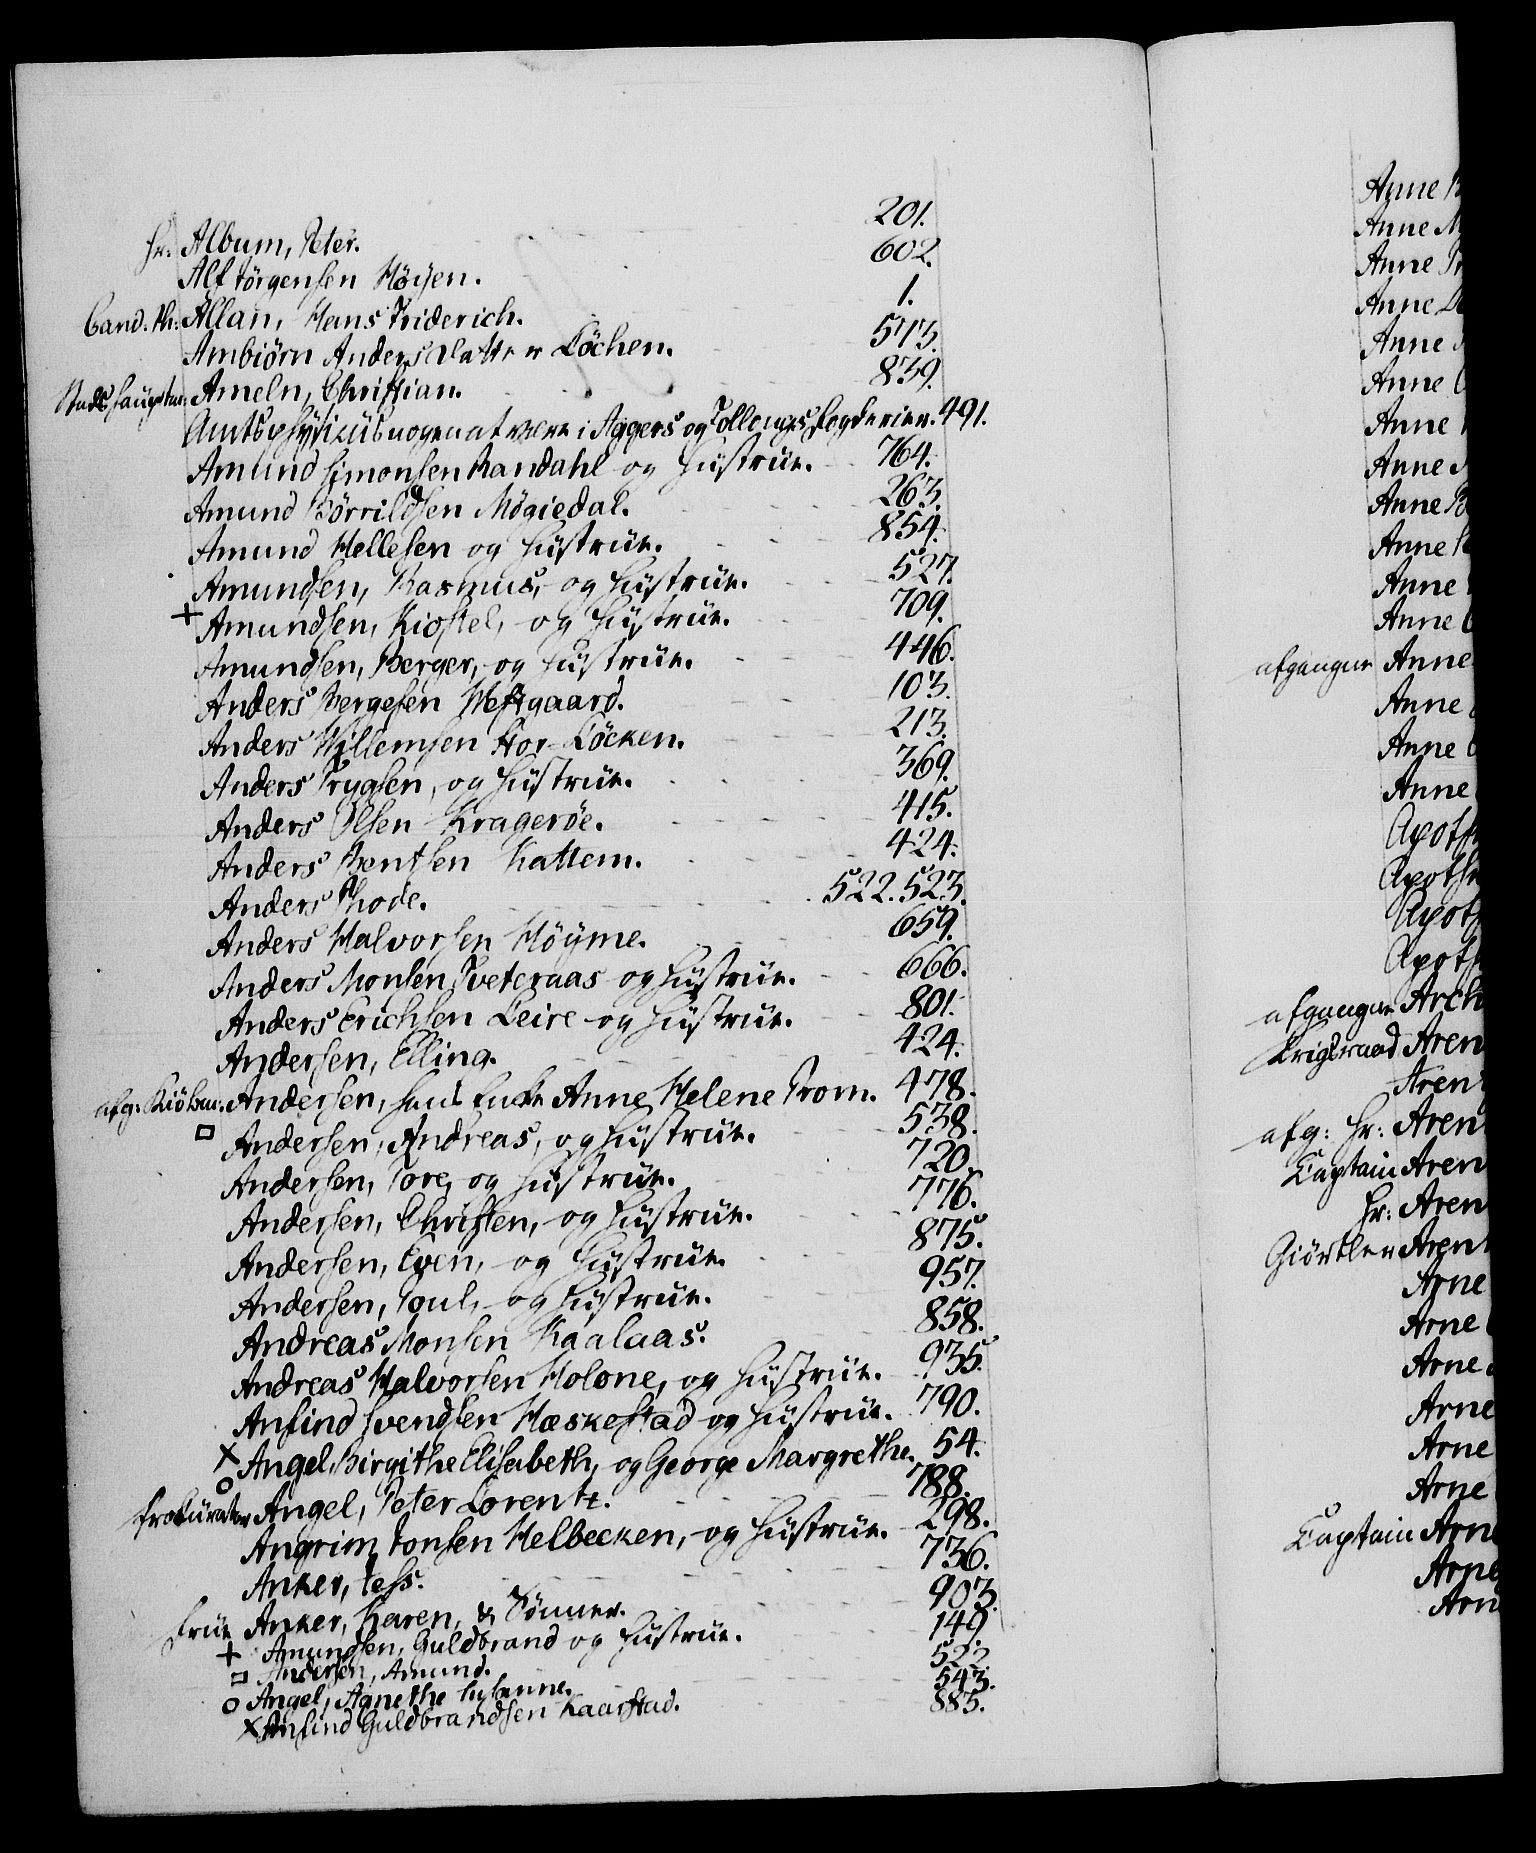 Hr: Album, Peter. 201.
Alf Jörgensen Höyen. 602.
Cand: Ph: Allan, Hans Friderich. 1.
Ambiörn Andersdatter Löchen. 573.
Stadshauptm: Ameln, Christian. 839.
Amtsphysicus nogen at være i Aggers og Follougs Fogderier. 491.
Amund Simonsen Randahl og Hustrue. 764.
Amund Börrildsen Mögiedal. 263.
Amund Hellesen og Hustrue. 854.
Amundsen, Rasmus, og Hustrue. 527.
+ Amundsen, Kiostel, og Hustrue. 709.
Amundsen, Berger, og Hustrue. 446.
Anders Bergesen Westgaard. 103.
Anders Willemsen Stor-Löcken. 213.
Anders Trygsen, og Hustrue. 369.
Anders Olsen Krageröe. 415.
Anders Bentsen Kattem. 424.
Anders Thode. 522. 523.
Anders Halvorsen Höyme. 659.
Anders Monsen Tveteraas og Hustrue. 666.
Anders Erichsen Leire og Hustrue. 801.
Andersen, Elling. 424.
afg: Kiöbm: Andersen, hans Enke Anne Helene Trom. 478.
□ Andersen, Andreas, og Hustrue. 538.
Andersen, Tore, og Hustrue. 720.
Andersen, Christen, og Hustrue. 776.
Andersen, Even, og Hustrue. 875.
Andersen, Poul, og Hustrue. 957.
Andreas Monsen Kaalaas. 858.
Andreas Halvorsen Holone, og Hustrue. 935.
Anfind Svendsen Hæskestad og Hustrue. 790.
x Angel, Birgithe Elisabeth, og George Margrethe. 54.
o Prokurator Angel, Peter Lorentz. 788.
Angrim Jonsen Helbecken, og Hustrue. 298.
Anker, Jess. 736.
Frue Anker, Karen, & Sönner. 903.
+ Amundsen, Guldbrand og Hustrue. 149.
□ Andersen, Amund. 522.
o Angel, Agnethe Susanne. 543.
x Anfind Guldbrandsen Kaarstad. 885.
Anne
Anne
Anne
Anne
Anne
Anne
Anne
Anne
Anne
Anne
Anne
Anne
afgangne Anne
Anne
Anne
Anne
Apoth
Apoth
Apoth
Apoth
afgangne Arch
Krigsraad Aren
Aren
afg: Hr: Aren
Captain Aren
Hr: Aren
Giörtler Aren
Arne
Arne
Arne
Arne
Arne
Arne
Captain Arn
Arne
Arn